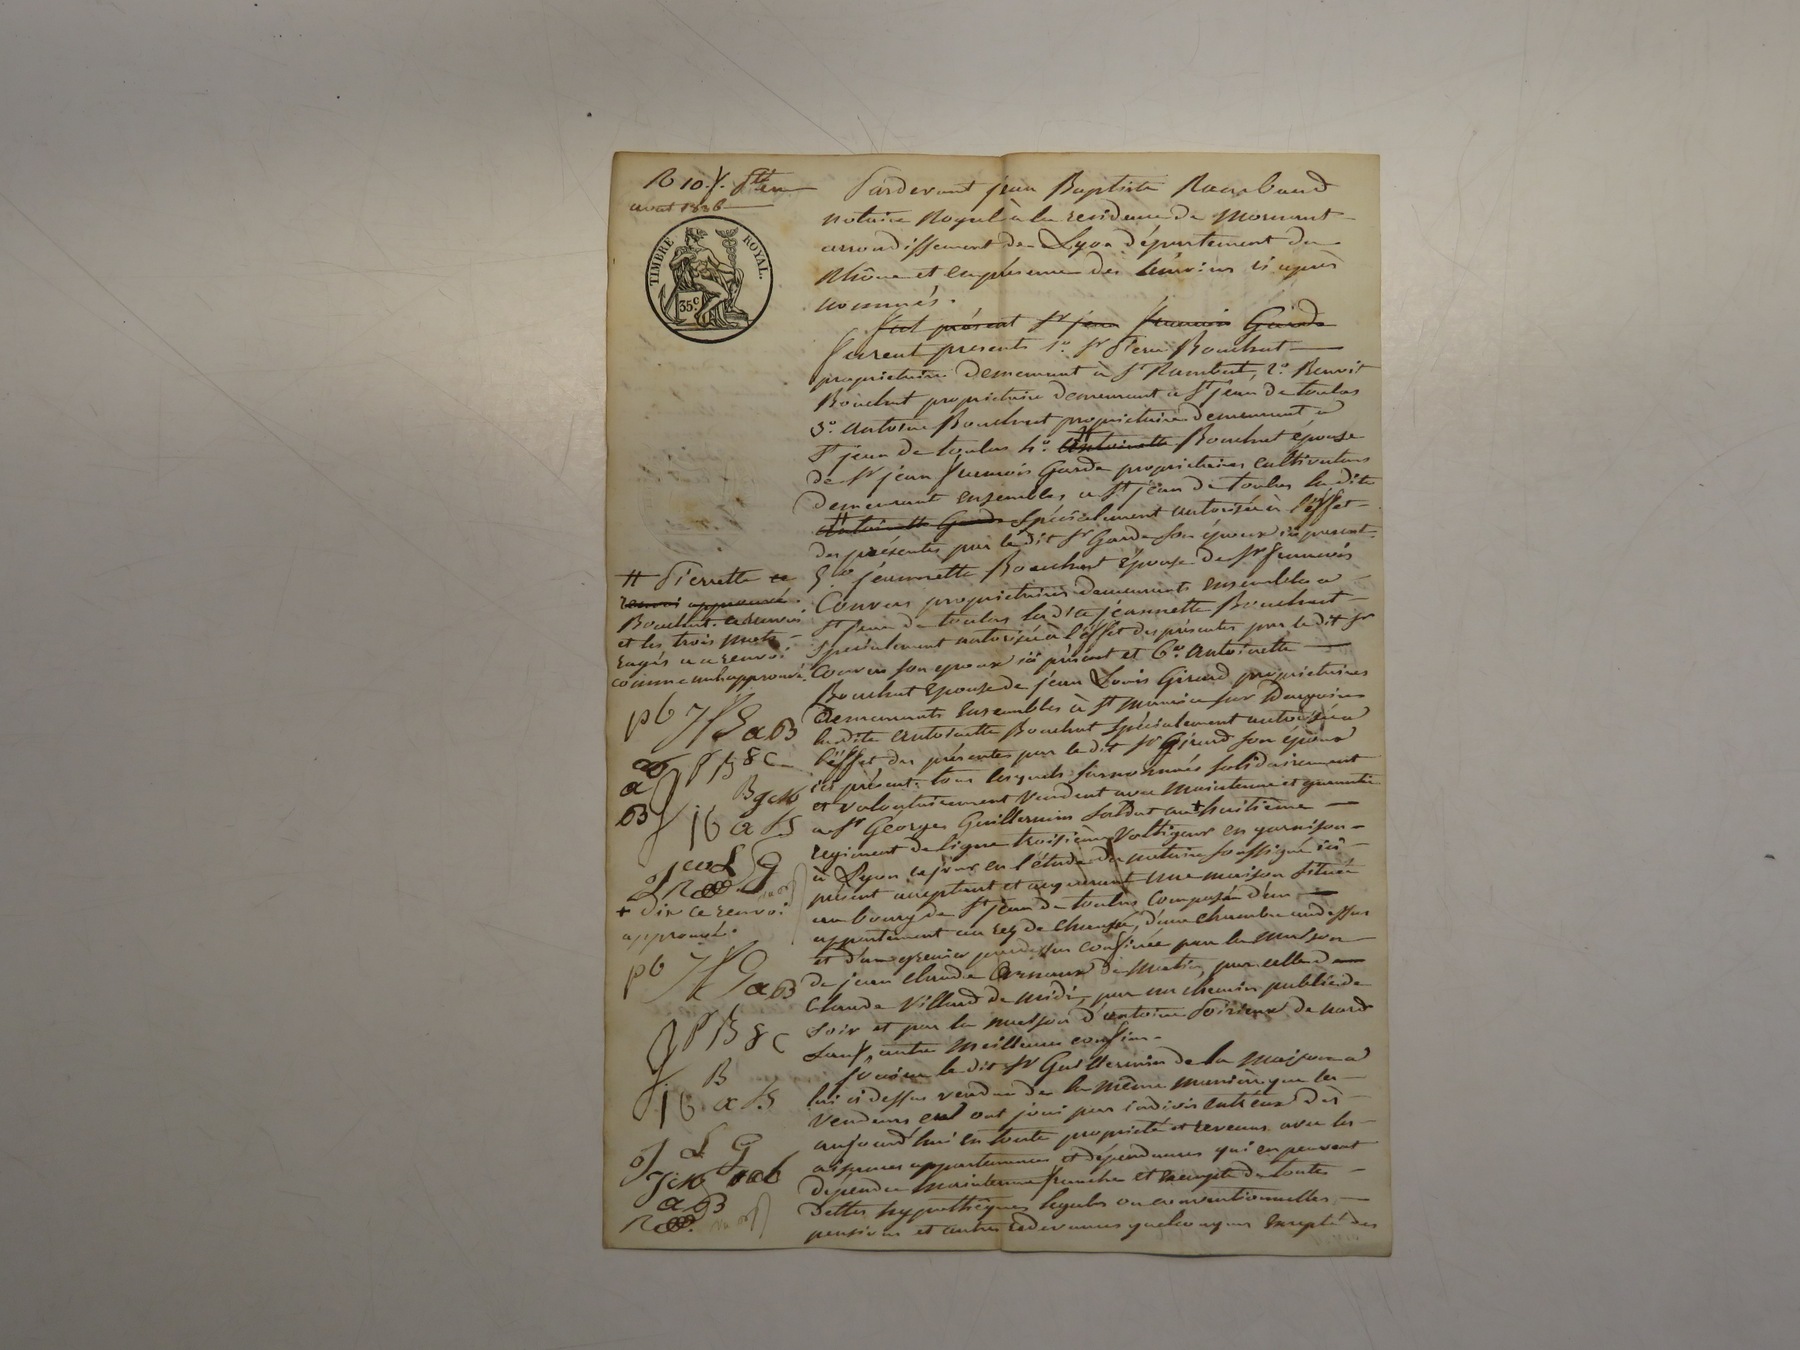 R 10.
avril 1836
TIMBRE ROYAL.
35c.
Pardevant jean Baptiste Rambaud
notaire Royal à la residence de Mornant
arrondissement de Lyon département du
Rhône et en présence des témoins ci après
nommés.
fut présent Sr jean francois Garde
furent presents 1o. Sr Pierre Bouchut
propriétaire demeurant à St Rambert, 2o. Benoit
Bouchut propriétaire demeurant à St jean de toulas
3o. antoine Bouchut propriétaire demeurant à
St jean de toulas 4o. Antoinette Bouchut épouse
de Sr jean francois Garde propriétaires cultivateurs
demeurant ensembles a St jean de toulas la dite
Antoinette Garde spécialement autorisée à l'effet
des présentes par le dit Sr Garde son époux ici présent.
5o jeannette Bouchut épouse de Sr francois
Couvers propriétaires demeurants ensembles a
St jean de toulas la dite jeannette Bouchut
spécialement autorisée à l'effet des présentes par le dit Sr
Couvers son epoux ici présent et 6o. Antoinette
Bouchut epouse de jean Louis Girard propriétaires
demeurants ensembles à St Maurice sur Dargoire
la dite Antoinette Bouchut spécialement autorisée a
l'effet des présentes par le dit Sr Girard son époux
ici présent. tous lesquels surnommés solidairement
et volontairement vendent avec maintenue et garantie
a Sr Georges Guillermin soldat au + huitième
regiment de ligne troisième voltigeur en garnison
à Lyon ce jour en l'étude du notaire soussigné ici
présent acceptant et acquerant une maison située
au bourg de St jean de toulas composée d'un
appartement au rez de chaussé, d'une chambre au dessus
et d'un grenier par dessus confinée par la maison
de jean claude de matin, par celle de
Claude Villard de midi, par un chemin public de
soir et par la maison d'antoine Poirieux de nord
sauf, autre meilleurs confins.
jouira le dit Sr Guillermin de la maison a
lui ci dessus vendue de la même manière que les
vendeurs en ont joui par indivis entr'eux dès
aujourd'hui en toute propriété et revenus avec les
aisances appartenances et dépendances qui en peuvent
dépendre maintenue franche et exempte de toutes
dettes hypothèques legales ou conventionnelles
pensions et autres redevances quelconques excepté des
# Pierrette ce
renvoi approuvé.
Bouchut. ce renvoi
et les trois mots
rayés au renvoi
comme nuls approuvé.
p b
a B
+ dix ce renvoi
approuvé.
p b
a B